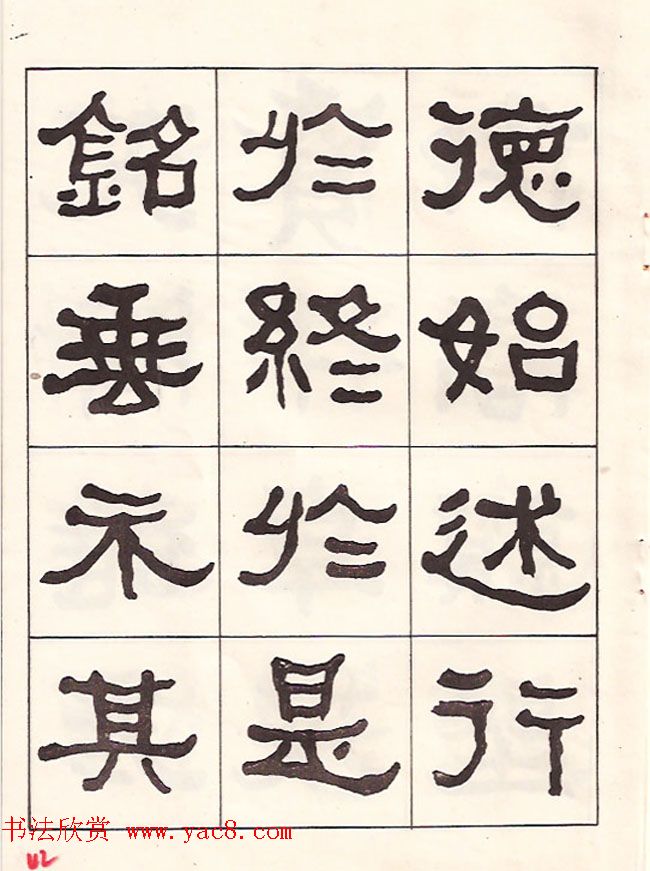 德始述行
於終於是
銘垂示其
书法欣赏 www.yac8.com
42